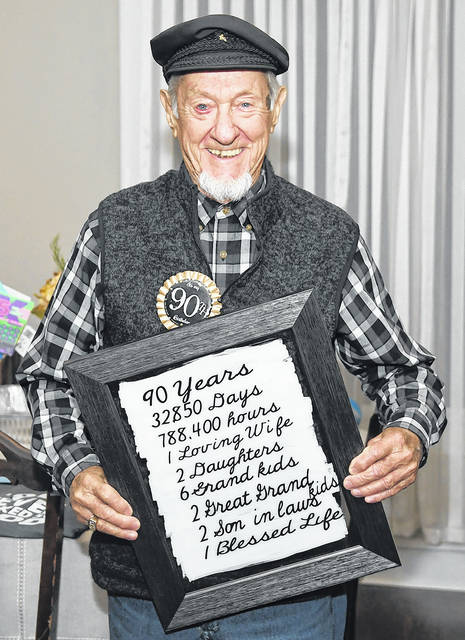 90th
Birthday
90 Years
32850 Days
788.400 hours
1 Loving Wife
2 Daughters
6 Grand kids
2 Great Grand kids
2 Son in laws
1 Blessed Life